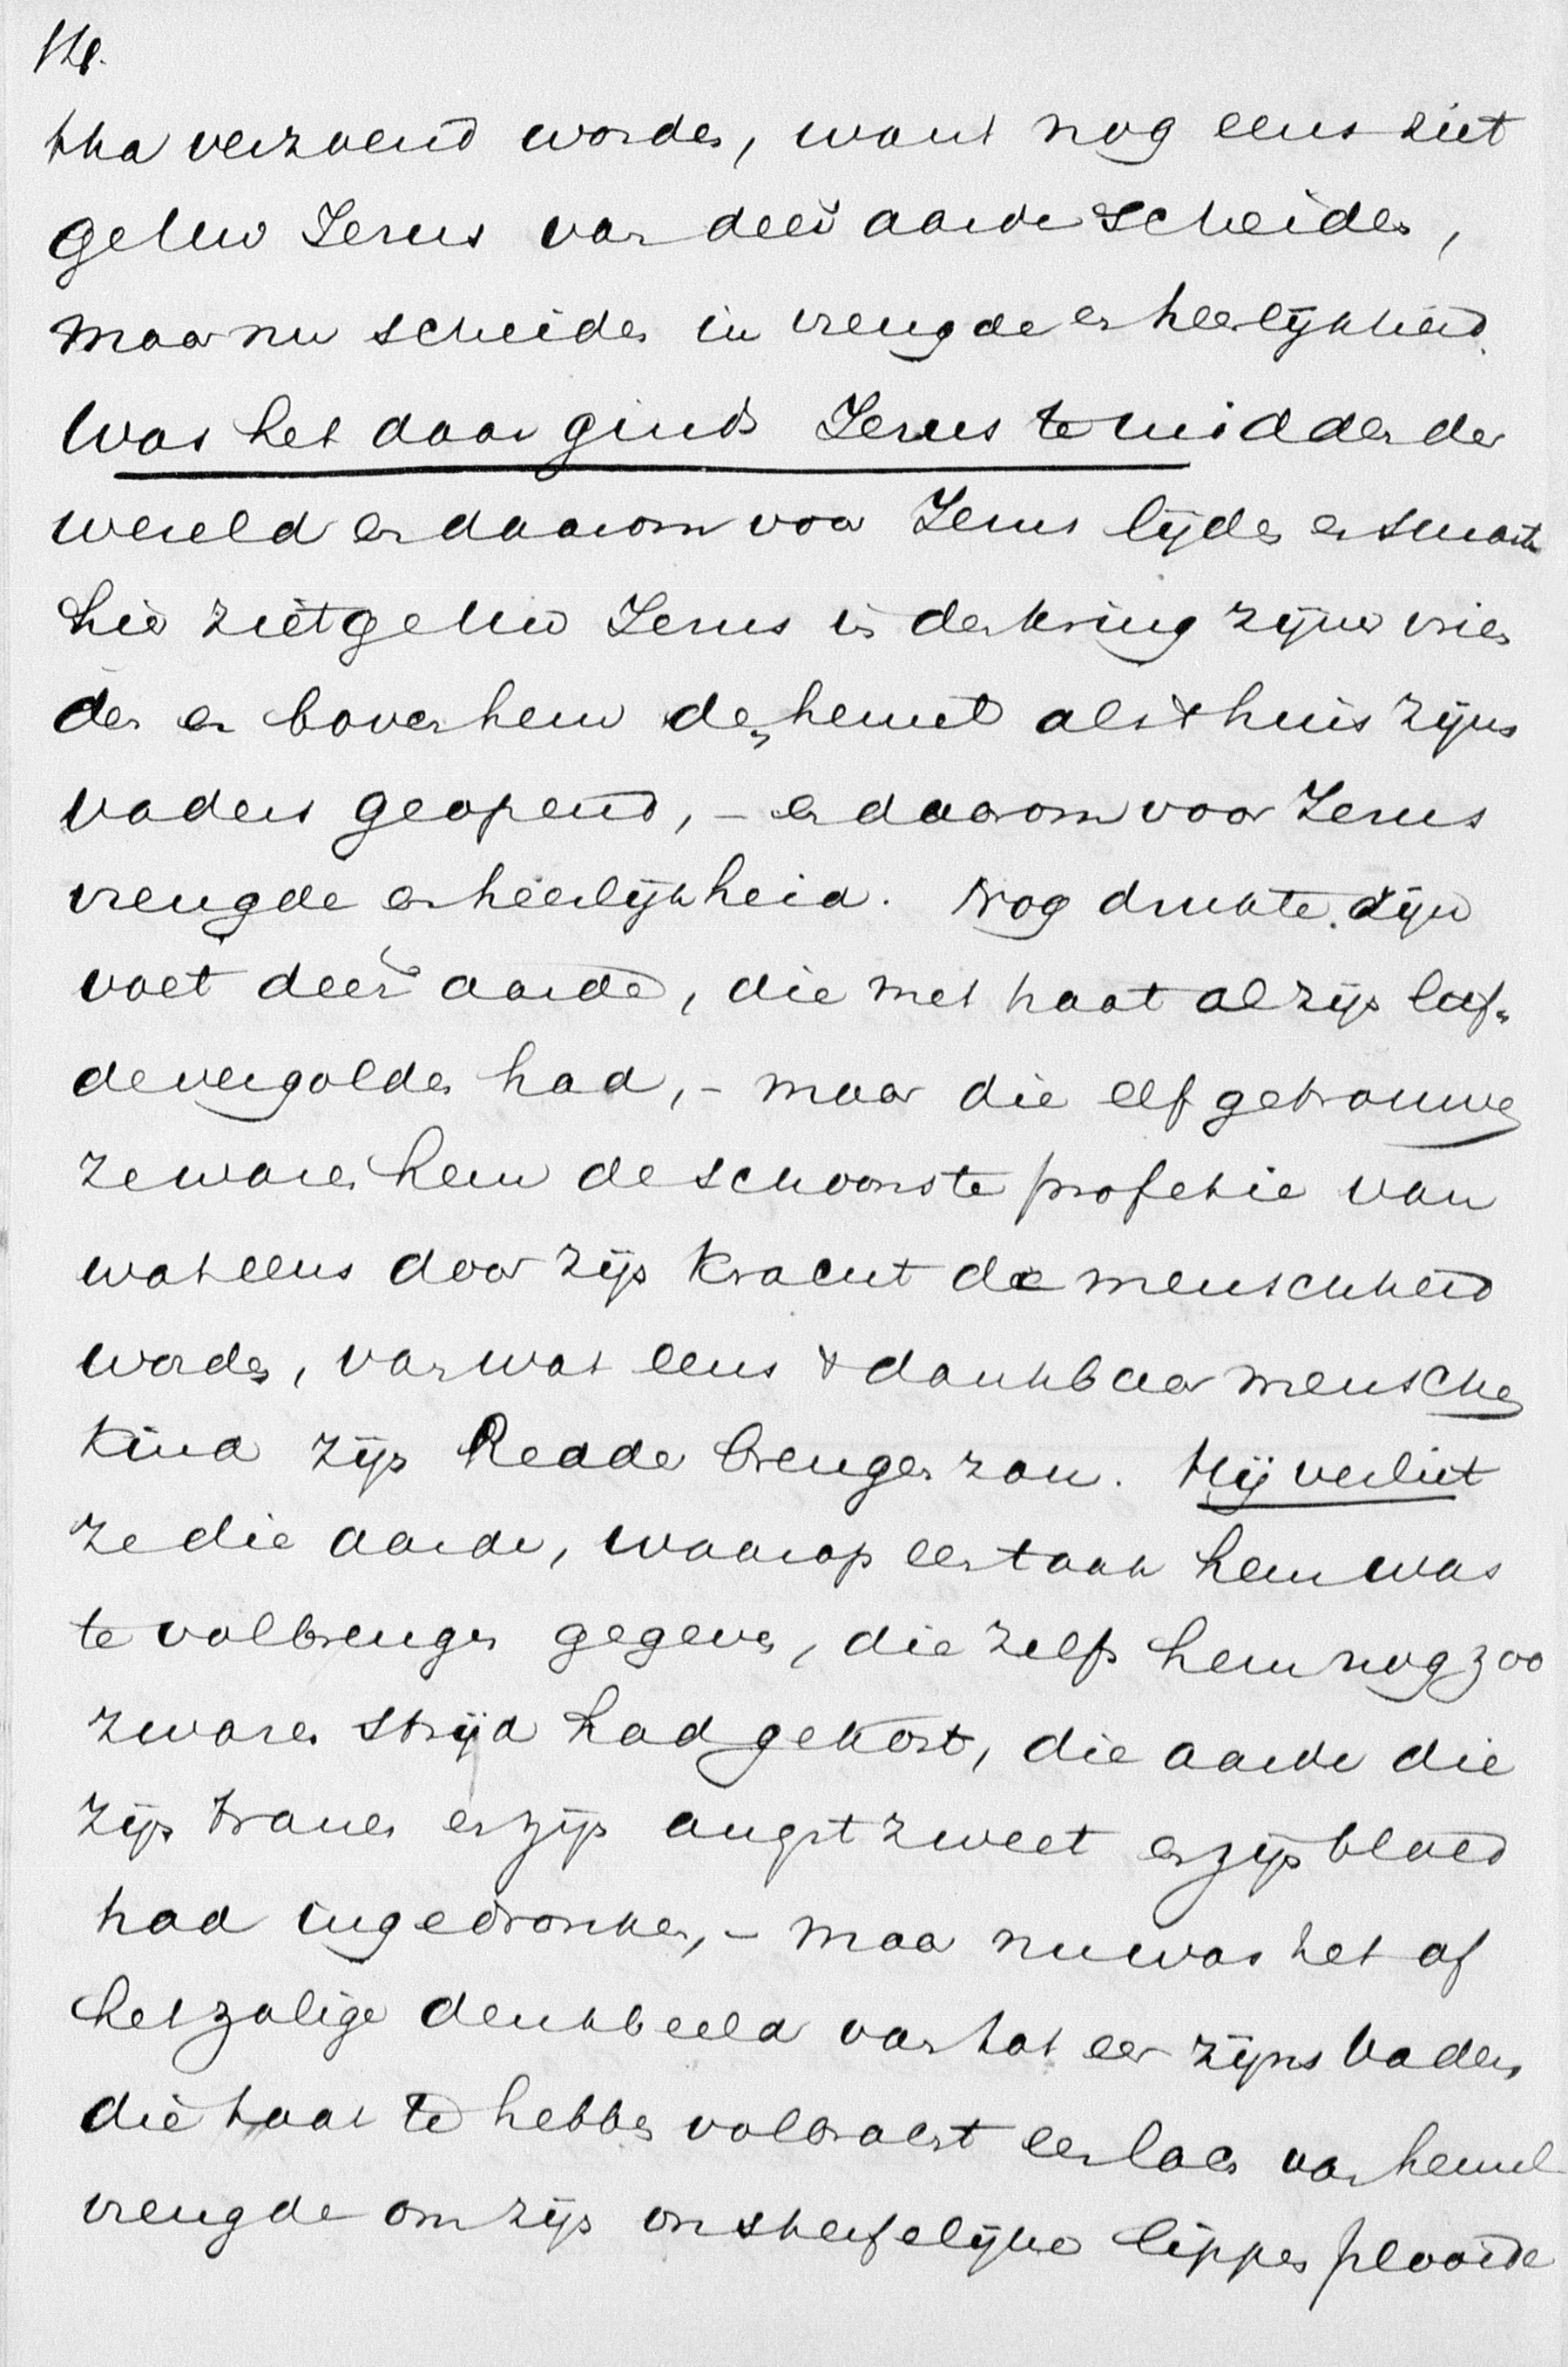 tha verzoend worden, want nog eens ziet
ge Uw Jezus van deez' aarde scheiden,
maar nu scheiden in vreugde en heerlijkheid.
Was het daar ginds Jezus te midden der
wereld en daarom voor Jezus lijden en smarte
hier ziet ge Uw Jezus in den kring zijner vrien
den en boven hem den hemel als 't huis zijns
Vaders geopend, - en daarom voor Jezus
vreugde en heerlijkheid. Nog drukte zijn
voet deez' aarde, die met haat al zijn lief-
de vergolden had, - maar die elf getrouwen
ze waren hem de schoonste profetie van
wat eens door zijn kracht de menschheid
worden, van wat eens 't dankbaar menschen
kind zijn Redder brengen zou. Hij verliet
ze die aarde, waarop een taak hem was
te volbrengen gegeven, die zelfs hem nog zoo
zwaren strijd had gekost, die aarde die
zijn tranen en zijn angstzweet en zijn bloed
had ingedronken, - maar nu was het of
het zalige denkbeeld van tot eer zijns Vaders
die taak te hebben volbracht een lach van hemel
vreugde om zijn onsterfelijke lippen plooide